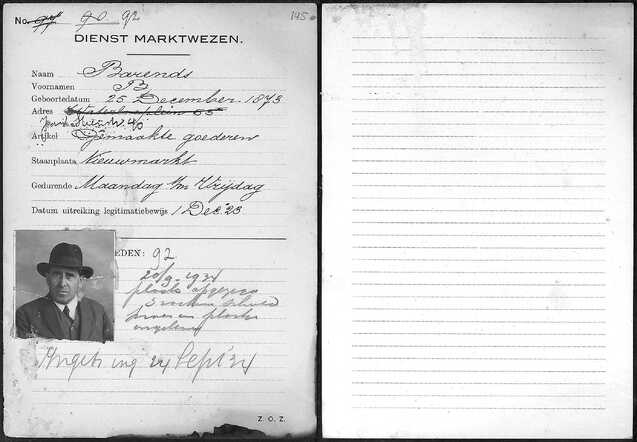 No. 97 90 92
145
DIENST MARKTWEZEN.
Naam Barends
Voornamen B
Geboortedatum 25 December 1873
Adres 55
Artikel Gemaakte goederen
Staanplaats Nieuwmarkt
Gedurende Maandag t/m Vrijdag
Datum uitreiking legitimatiebewijs 1 Dec. '23
EDEN: 92
20/9-1934
plaats opgezegd
3 weken schuld
en plaats
Sept '34
Z. O. Z.